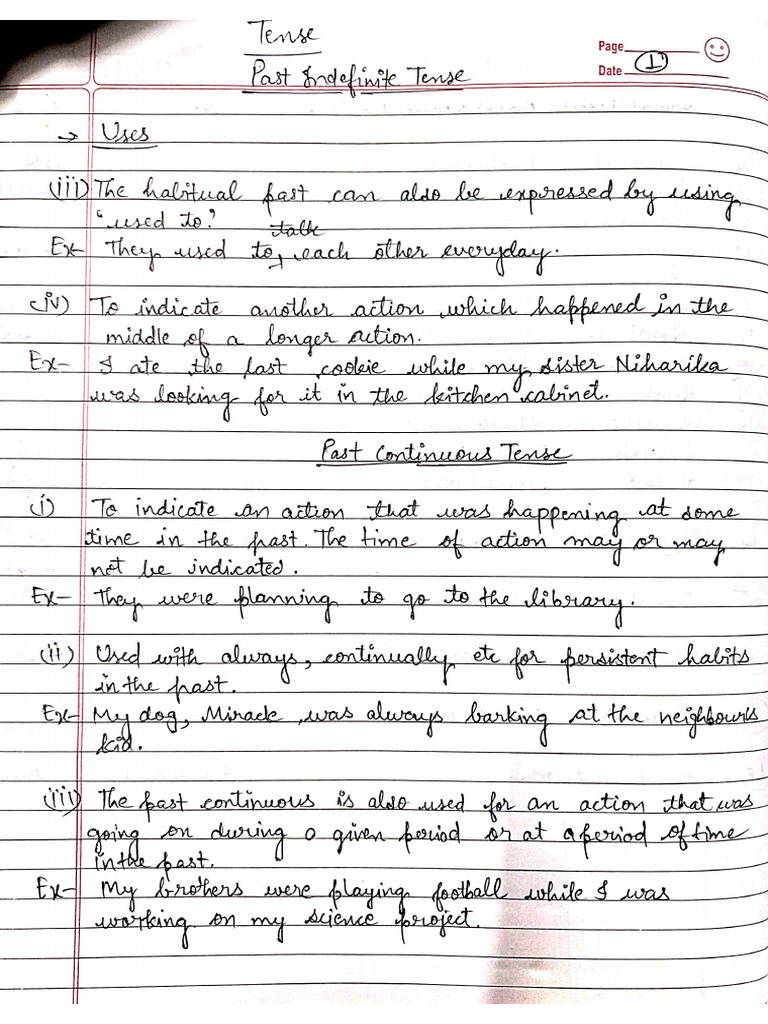 Tense
Page
Date 1
Past Indefinite Tense
→ Uses
(iii) The habitual past can also be expressed by using
'used to'.
talk
Ex- They used to, each other everyday.
(iv) To indicate another action which happened in the
middle of a longer action.
Ex- I ate the last cookie while my sister Niharika
was looking for it in the kitchen cabinet.
Past Continuous Tense
(i) To indicate an action that was happening at some
time in the past. The time of action may or may
not be indicated.
Ex- They were planning to go to the library.
(ii) Used with always, continually etc for persistent habits
in the past.
Ex- My dog, was always barking at the neighbour's
kid.
(iii) The past continuous is also used for an action that was
going on during a given period or at a period of time
in the past.
Ex- My brothers were playing football while I was
working on my science project.